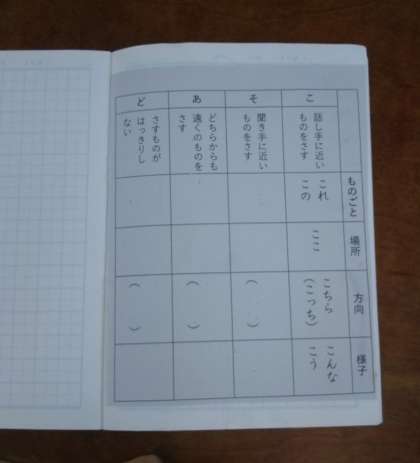 こ
そ
あ
ど
話し手に近い
ものをさす
聞き手に近い
ものをさす
どちらからも
遠くのものを
さす
さすものが
はっきりし
ない
ものごと
これ
この
場所
ここ
方向
こちら
(こっち)
(　)
(　)
(　)
様子
こんな
こう